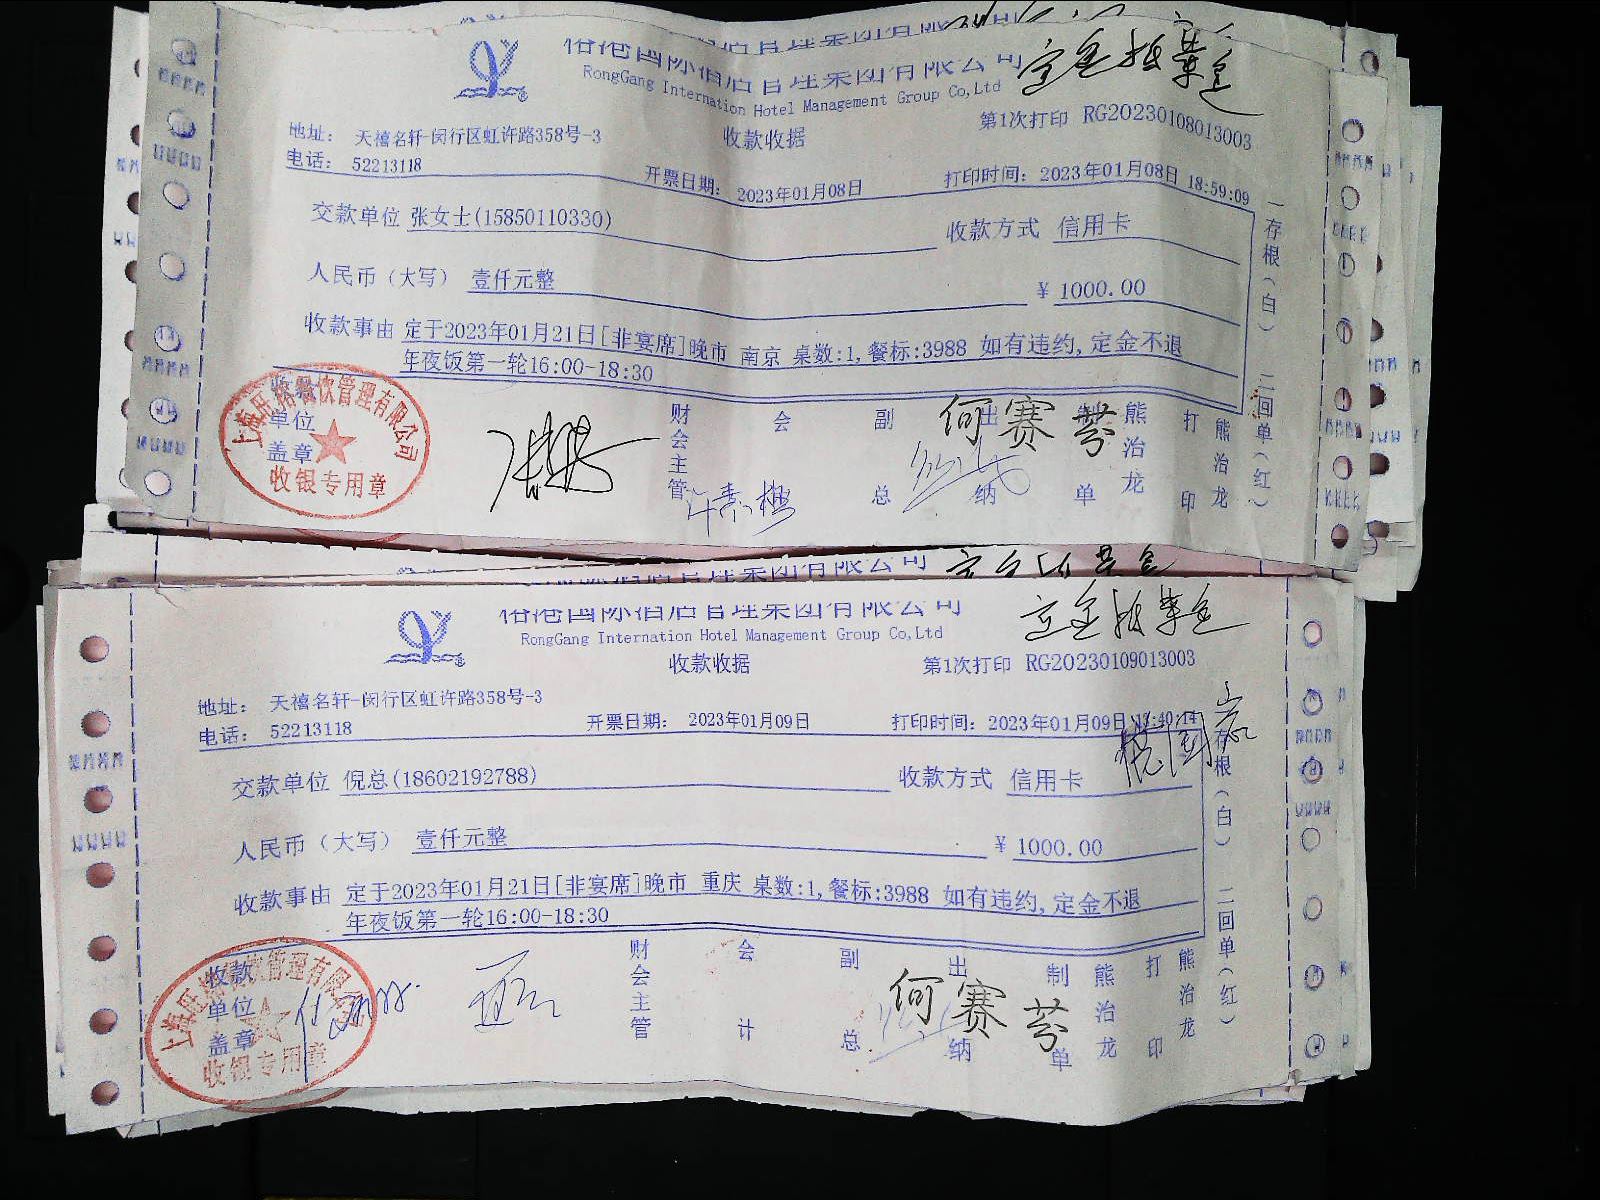 裕港国际酒店管理集团有限公司
RongGang Internation Hotel Management Group Co,Ltd
收款收据
第1次打印 RG20230108013003
地址： 天禧名轩-闵行区虹许路358号-3
电话： 52213118
开票日期： 2023年01月08日
打印时间： 2023年01月08日 18:59:09
交款单位 张女士(15850110330)
收款方式 信用卡
人民币（大写） 壹仟元整
￥ 1000.00
收款事由 定于2023年01月21日[非宴席]晚市 南京 桌数:1,餐标:3988 如有违约,定金不退
年夜饭第一轮16:00-18:30
一存根（白） 二回单（红）
收款单位盖章
收银专用章
财会主管
会
副总
出纳
何赛芬
制单
熊治龙
打印
熊治龙
裕港国际酒店管理集团有限公司
RongGang Internation Hotel Management Group Co,Ltd
收款收据
第1次打印 RG20230109013003
地址： 天禧名轩-闵行区虹许路358号-3
电话： 52213118
开票日期： 2023年01月09日
打印时间： 2023年01月09日
交款单位 倪总(18602192788)
收款方式 信用卡
人民币（大写） 壹仟元整
￥ 1000.00
收款事由 定于2023年01月21日[非宴席]晚市 重庆 桌数:1,餐标:3988 如有违约,定金不退
年夜饭第一轮16:00-18:30
存根（白） 二回单（红）
收款单位盖章
收银专用章
财会主管
会计
副总
出纳
何赛芬
制单
熊治龙
打印
熊治龙